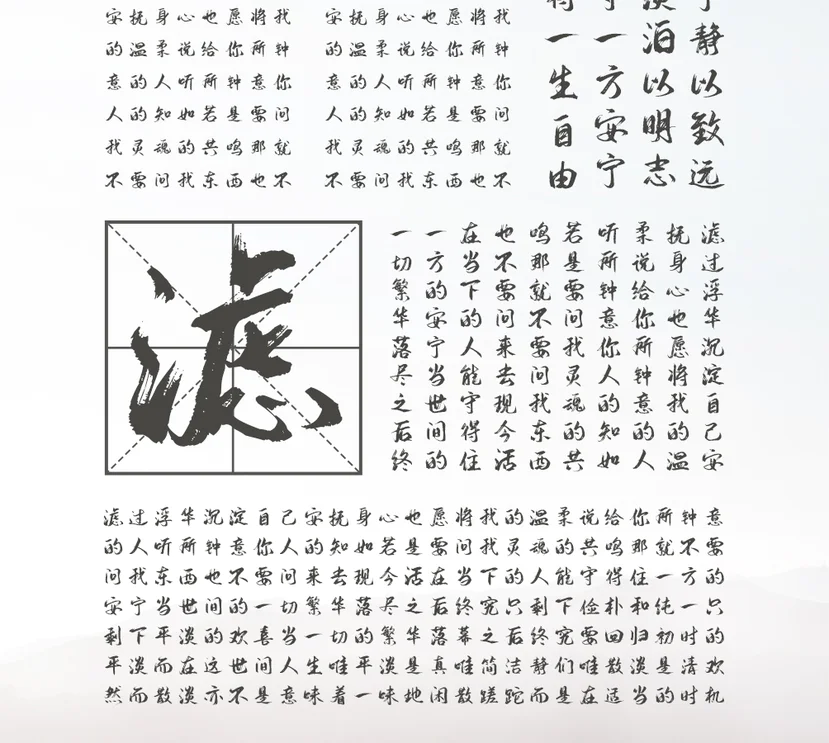 安抚身心也愿将我
的温柔说给你所钟
意的人听所钟意你
人的知如若是要问
我灵魂的共鸣那就
不要问我东西也不
安抚身心也愿将我
的温柔说给你所钟
意的人听所钟意你
人的知如若是要问
我灵魂的共鸣那就
不要问我东西也不
宁静以致远
淡泊以明志
守一方安宁
得一生自由
滤
滤过浮华沉淀自己安
抚身心也愿将我的温
柔说给你所钟意的人
听所钟意你人的知如
若是要问我灵魂的共
鸣那就不要问我东西
也不要问来去现今活
在当下的人能守得住
一方的安宁当世间的
一切繁华落尽之后终
滤过浮华沉淀自己安抚身心也愿将我的温柔说给你所钟意
的人听所钟意你人的知如若是要问我灵魂的共鸣那就不要
问我东西也不要问来去现今活在当下的人能守得住一方的
安宁当世间的一切繁华落尽之后终究只剩下俭朴和纯一只
剩下平淡的欢喜当一切的繁华落幕之后终究要回归初时的
平淡而在这世间人生唯平淡是真唯简洁静们唯散淡是清欢
然而散淡亦不是意味着一味地闲散蹉跎而是在适当的时机